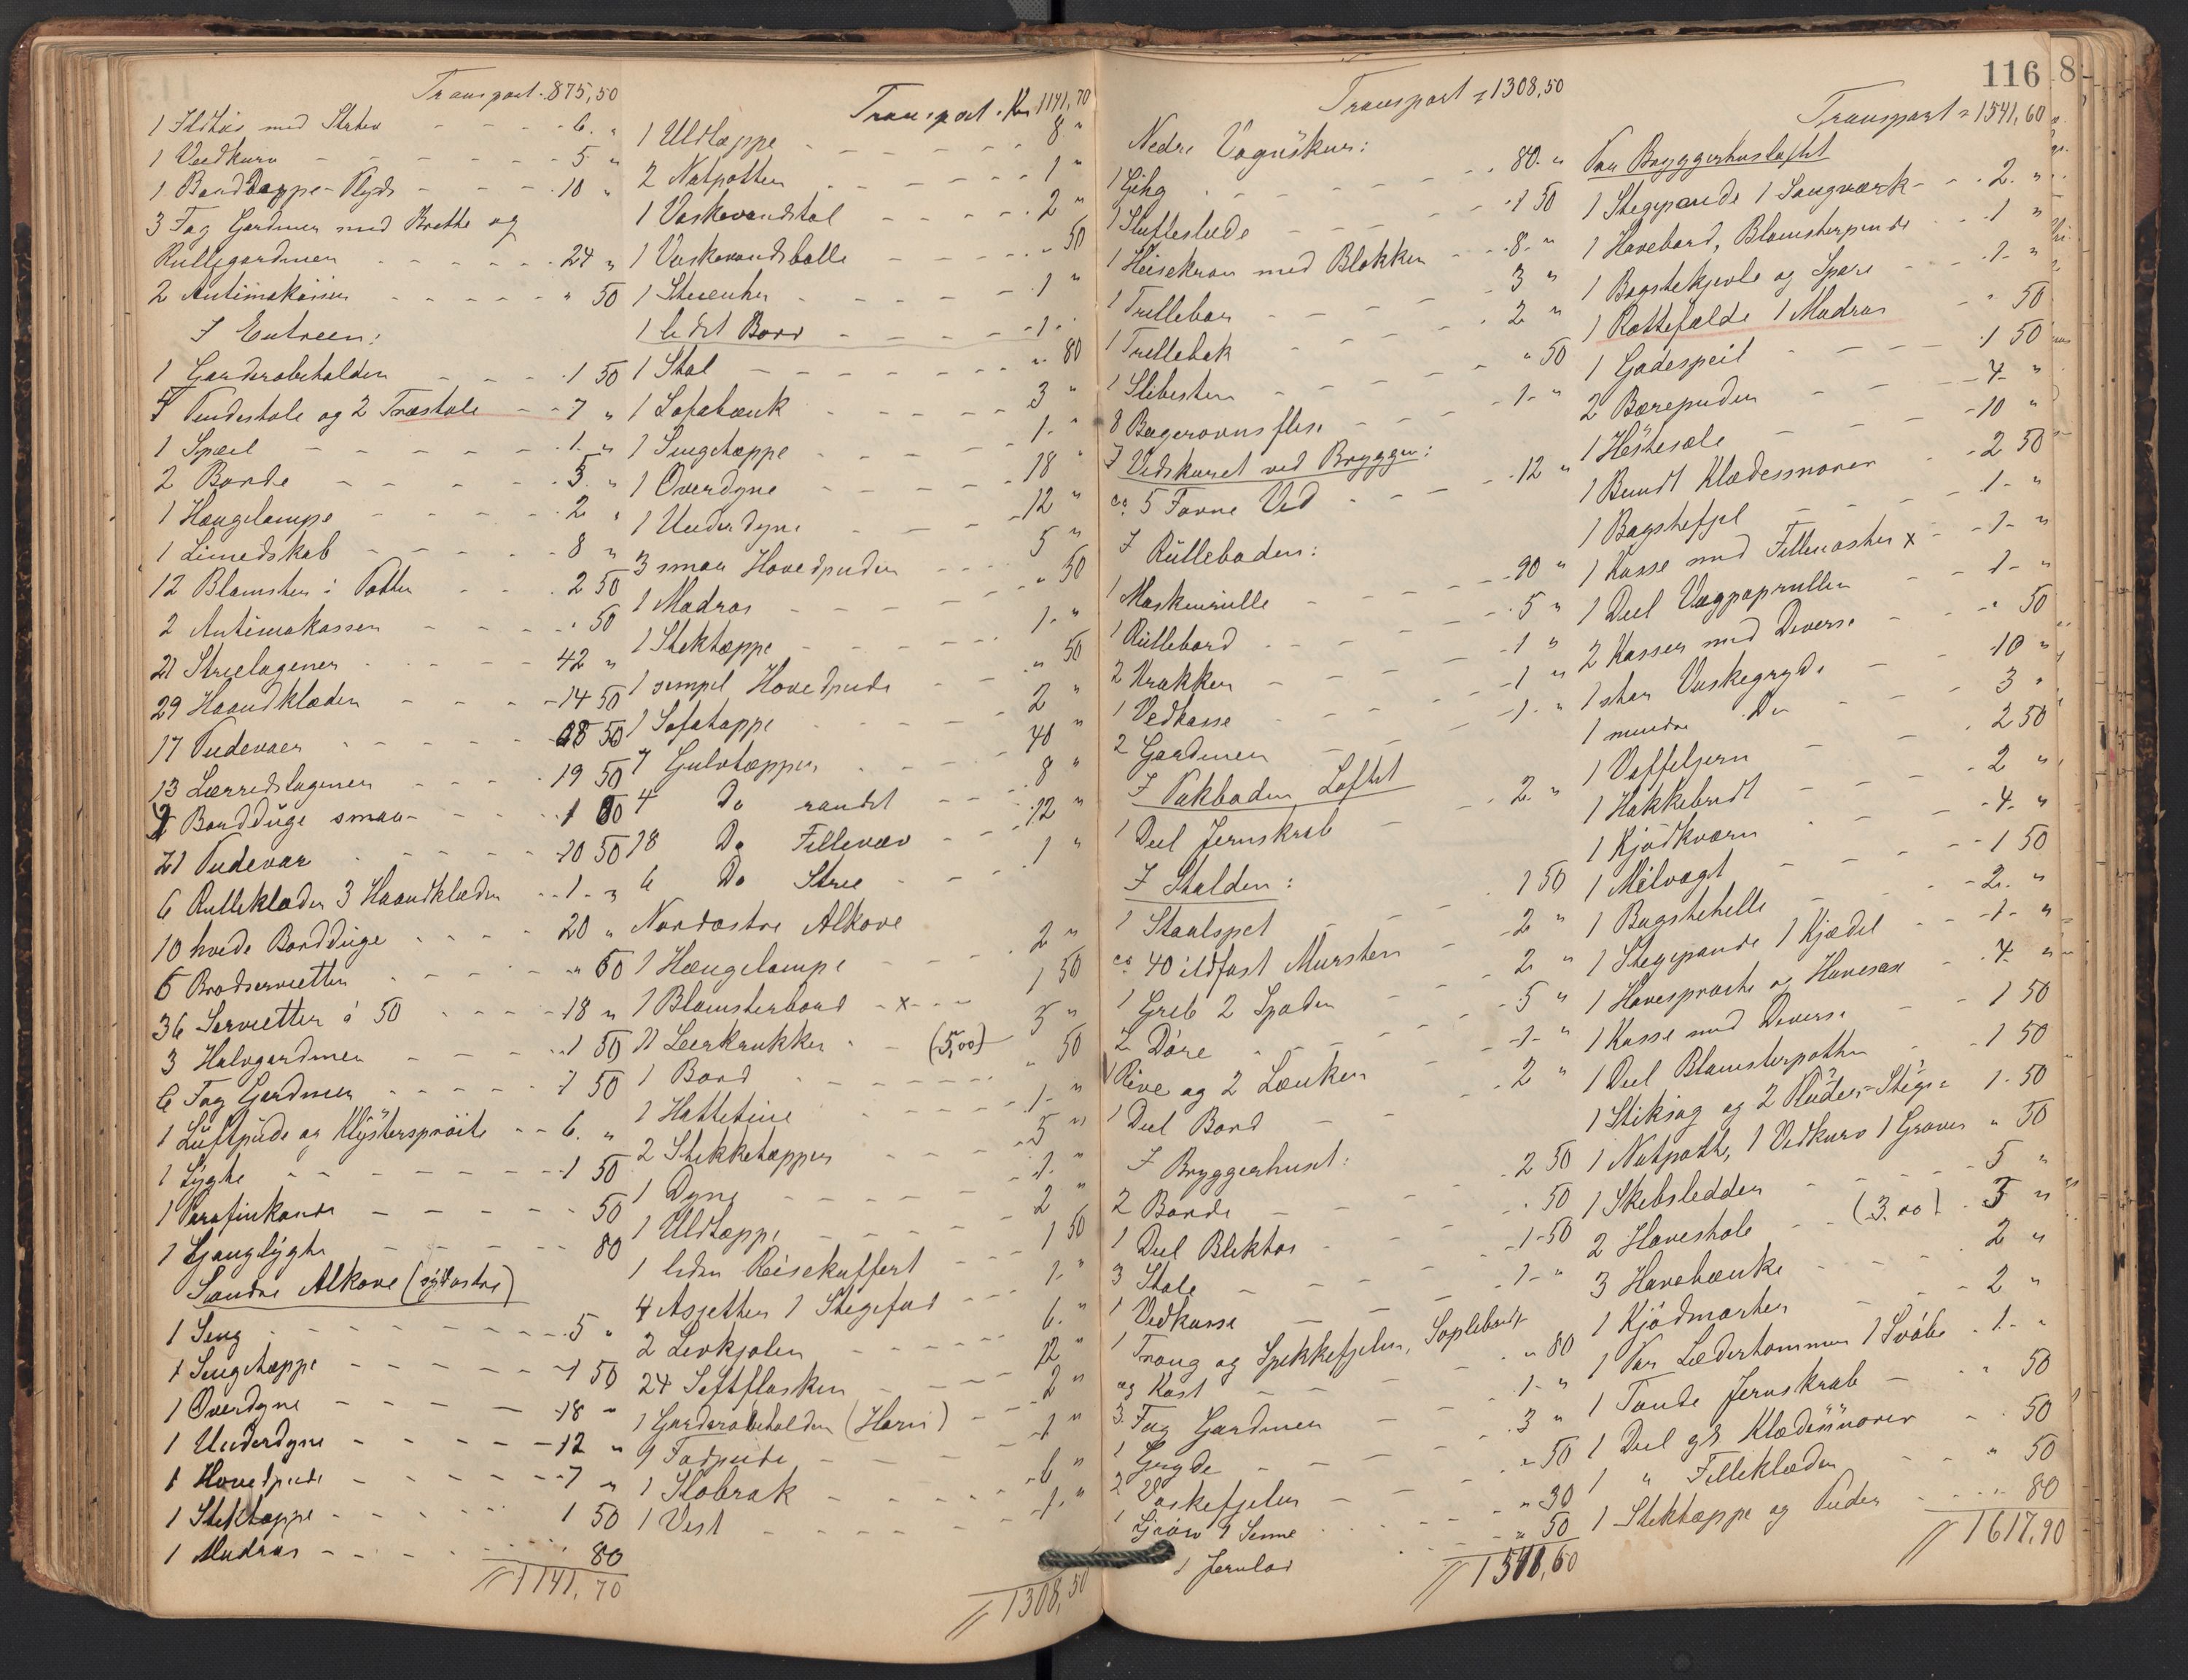 Transport. 875,50
1 Ildtøi med Stativ - - - - 6. "
1 Vedkurv - - - - - - 5 "
1 Bordtæppe - Plyds - - - - 10 "
3 Fag Gardiner med Brette og
Rullegardiner - - - - - 24 "
2 Antimakasser - - - - - " 50
I Entreen:
1 Garderobeholder - - - 1 50
4 Pindestole og 2 Træstole - - 7 "
1 Speil - - - - - - - 1. "
2 Borde - - - - - - 3. "
1 Hængelampe - - - - - 2 "
1 Linnedskab - - - - - 8 "
12 Blomster i Potter - - - 2 50
2 Antimakasser - - - - " 50
21 Strielagener - - - - 42 "
29 Haandklæder - - - - 14 50
17 Pudevaer - - - - - 8 50
13 Lærredslagener - - - - 19 50
2 Bordduge smaa - - - 1
21 Pudevar - - - - - 10 50
6 Rulleklæder 3 Haandklæder - - 1 - "
10 hvide Bordduge - - - - 20 "
6 Brødservietter - - - - " 60
36 Servietter á 50 - - - - 18 "
3 Halvgardiner - - - - 1 50
6 Fag Gardiner - - - - - 1 50
1 Luftpude og Klystersprøite - - 6. "
1 Lygte - - - - - - - 1 50
1 Parafinkande - - - - - - 50
1 Ganglygte - - - - - 80
Søndre Alkove (sydøstre)
1 Seng - - - - - - - 5 "
1 Sengetæppe - - - - - 1 50
1 Overdyne - - - - - 18 "
1 Underdyne - - - - - 12 "
1 Hovedpude - - - - - 7 "
1 Stiktæppe - - - - - 1 50
1 Madras - - - - - - 80
1141,70
Transport. Kr. 1141,70
1 Uldtæppe - - - - - - 8 "
2 Natpotter - - - - - - 1 "
1 Vaskevandstol - - - - - 2 "
1 Vaskevandsbolle - - - - " 50
1 Steenter - - - - - - 1 "
1 lidet Bord - - - - - 1. "
1 Stol - - - - - - - " 80
1 Sofabænk - - - - - 3 "
1 Sengetæppe - - - - 1. "
1 Overdyne - - - - - 18 "
1 Underdyne - - - - 12 "
3 smaa Hovedpuder - - - 5 "
1 Madras - - - - - - " 50
1 Stektæppe - - - - - 1. "
1 simpel Hovedpude - - " 50
1 Sofatæppe - - - - 2 "
7 Gulvtæpper - - - - 40 "
4 Do randet - - - 8 "
18 Do Fillevæv - - - 12 "
6 Do Strie - - - 1 "
Nordøstre Alkove
1 Hængelampe - - - 2 "
1 Blomsterbord - x - - - 1 50
11 Leerkrukker - - (5,00) 5 "
1 Bord - - - - - " 50
1 Hattetine - - - - 1 - "
2 Stikketæpper - - - - 5 "
1 Dyne - - - - - - 1. "
1 Uldtæppe - - - - 2 "
1 liden Reisekuffert - - - 1 50
4 Asjetter 1 Stegefad - - - 1. "
2 Livkjoler - - - - - 6. "
24 Seftflasker - - - 12 "
1 Garderobeholder (Horn) - - 2 "
1 Fodpude - - - - 1 "
1 Slobrok - - - - - 6 "
1 Vest - - - - - - 1. "
1308,50
Transport = 1308,50
Nedre Vognskur:
1 Gihg - - - - - - - 80. "
1 Slufleslæde - - - - - 1 50
1 Heisekran med Blokker - - 8. "
1 Trillebør - - - - - 3 "
1 Trillebæk - - - - - 2 "
1 Slibesten - - - - - " 50
8 Bagerovns flise - - - 1. "
I Vedskuret ved Bryggen:
ca. 5 Favne Ved - - - - 12 "
I Rullebaden:
1 Maskinrulle - - - - 90 "
1 Rullebord - - - - - 5 "
2 Krakker - - - - - 1 "
1 Vedkasse - - - - - 1 "
2 Gardiner - - - - - 1. "
I Pakboden Loftet
1 Deel Jernskrab - - - 2. "
I Stalden:
1 Staalspet - - - - 1 50
ca. 40 ildfast Mursten - - 2 "
1 Greb 2 Spader - - - 2 "
2 Døre - - - - - - 5 "
1 Rive og 2 Lænker - - - 1. "
1 Deel Bord - - - - 2 "
I Bryggerhuset:
2 Borde - - - - - 2 50
1 Deel Bliktøi - - - - " 50
3 Stole - - - - - 1 - 50
1 Vedkasse - - - - 1 - "
1 Traug og Spekkefjeler, Soplebrett
og Kost - - - - - " 80
3 Fag Gardiner - - - 1 - "
1 Gryde - - - - - 3 "
2 Vaskefjeler - - - " 50
1 1 Senne - - - " 30
1 Jernlod - - - " 50
1541,60
116
Transport = 1541,60
Paa Bryggerhusloftet
1 Stegepande 1 Saugværk - - 2. "
1 Havebord, Blomsterpinde - - 1 "
1 Bagstekjevle og Spore - - 1 - "
1 Rottefælde 1 Madras - - " 50
1 Gadespeil - - - - 1 50
2 Bærepuder - - - 4 - "
1 Hestesæle - - - - 10 "
1 Bundt Klædessnorer - - 2 50
1 Bagstefjel - - - - 1 - "
1 Kasse med Fillenøster x - - 1 - "
1 Deel Vægpaprullen - - 1 - "
2 Kasser med Diverse - - " 50
1 stor Vaskegryde - - 10 "
1 mindre Do - - - 3 "
1 Vaffeljern - - - - 2 50
1 Hakkebredt - - - - 2 "
1 Kjødkværn - - - - 4 - "
1 Melvægt - - - - 1 50
1 Bagstehelle - - - - 2. "
1 Stegepande 1 Kjedel - - 1 - "
1 Havesprøite og Havesax - - 4 "
1 Kasse med Diverse - - 1 50
1 Deel Blomsterpotter - - 1 50
1 Stiksag og 2 Ruder - Stige 1. 50
1 Natpotte, 1 Vedkurv 1 Graver " 50
1 Skibsledder - - - - 5 "
2 Havestole - - (3.00) 3 "
3 Havebænke - - - - 2 "
1 Kjødmorter - - - - 2 "
1 Par Lædertømmer 1 Svøbe - 1 - "
1 Tønde Jernskrab - - " 50
1 Deel gl Klædesnorer - - 50
1 " Filleklæder - - " 50
1 Stektæppe og Puder - - - 80
1617,90
8